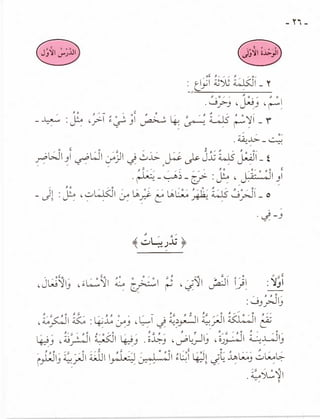 - ٢٦ -
الوحدة الأولى
الدرس الأول
٢ - الكلمة ثلاثة أنواع :
اسم ، وفعل ، وحرف .
٣ - الاسم كلمة يسمى بها شخص أو شيء آخر ، مثل : محمد -
- حديقة .
٤ - الفعل كلمة تدل على عمل حدث في الزمن الماضي أو الحاضر
أو المستقبل ، مثل : خرج -
٥ - الحرف كلمة يظهر معناها مع غيرها من الكلمات ، مثل : إلى -
و - في .
﴿ تدريبات ﴾
أولاً : اقرأ النص الآتي ، ثم استخرج منه الأسماء ، والأفعال ،
والحروف :
تقع المملكة العربية السعودية في آسيا ، ومن مدنها : مكة المكرمة ،
والمدينة المنورة ، والرياض ، وجدة . وفيها الكعبة المشرفة ، وفيها
جامعات ومعاهد يأتي إليها أبناء المسلمين ليتعلموا اللغة العربية والعلوم
الإسلامية .